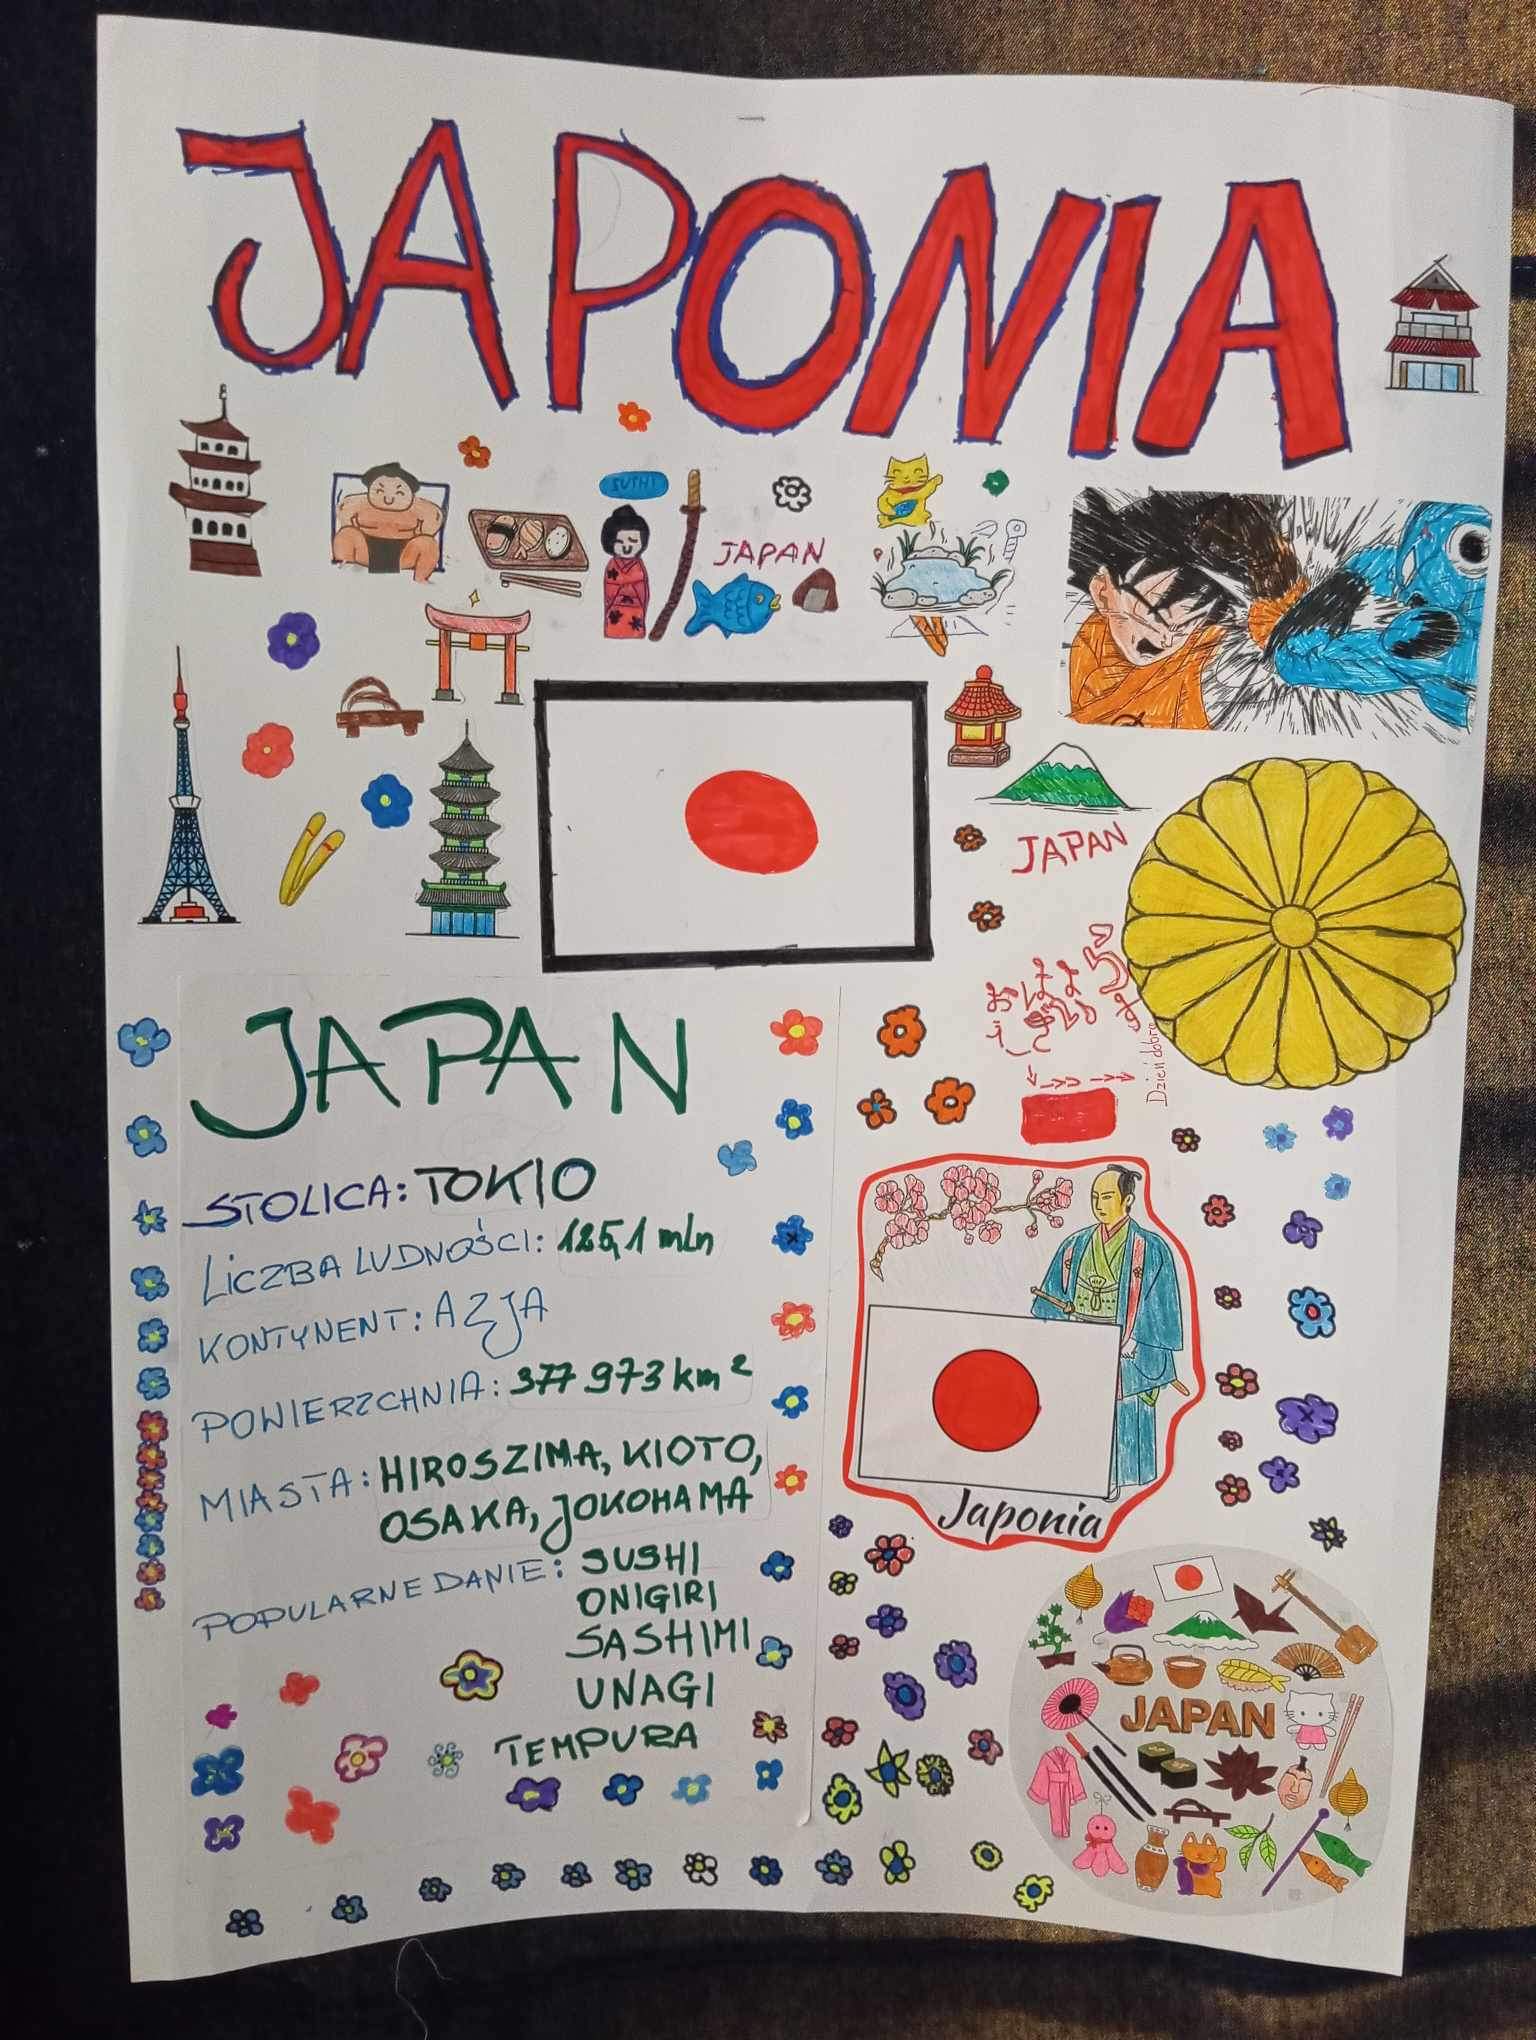 JAPONIA
SUSHI
JAPAN
JAPAN
Dzień dobry
JAPAN
STOLICA: TOKIO
LICZBA LUDNOŚCI: 125,1 mln
KONTYNENT: AZJA
POWIERZCHNIA: 377 973 km²
MIASTA: HIROSZIMA, KIOTO,
OSAKA, JOKOHAMA
POPULARNE DANIE: SUSHI
ONIGIRI
SASHIMI
UNAGI
TEMPURA
Japonia
JAPAN